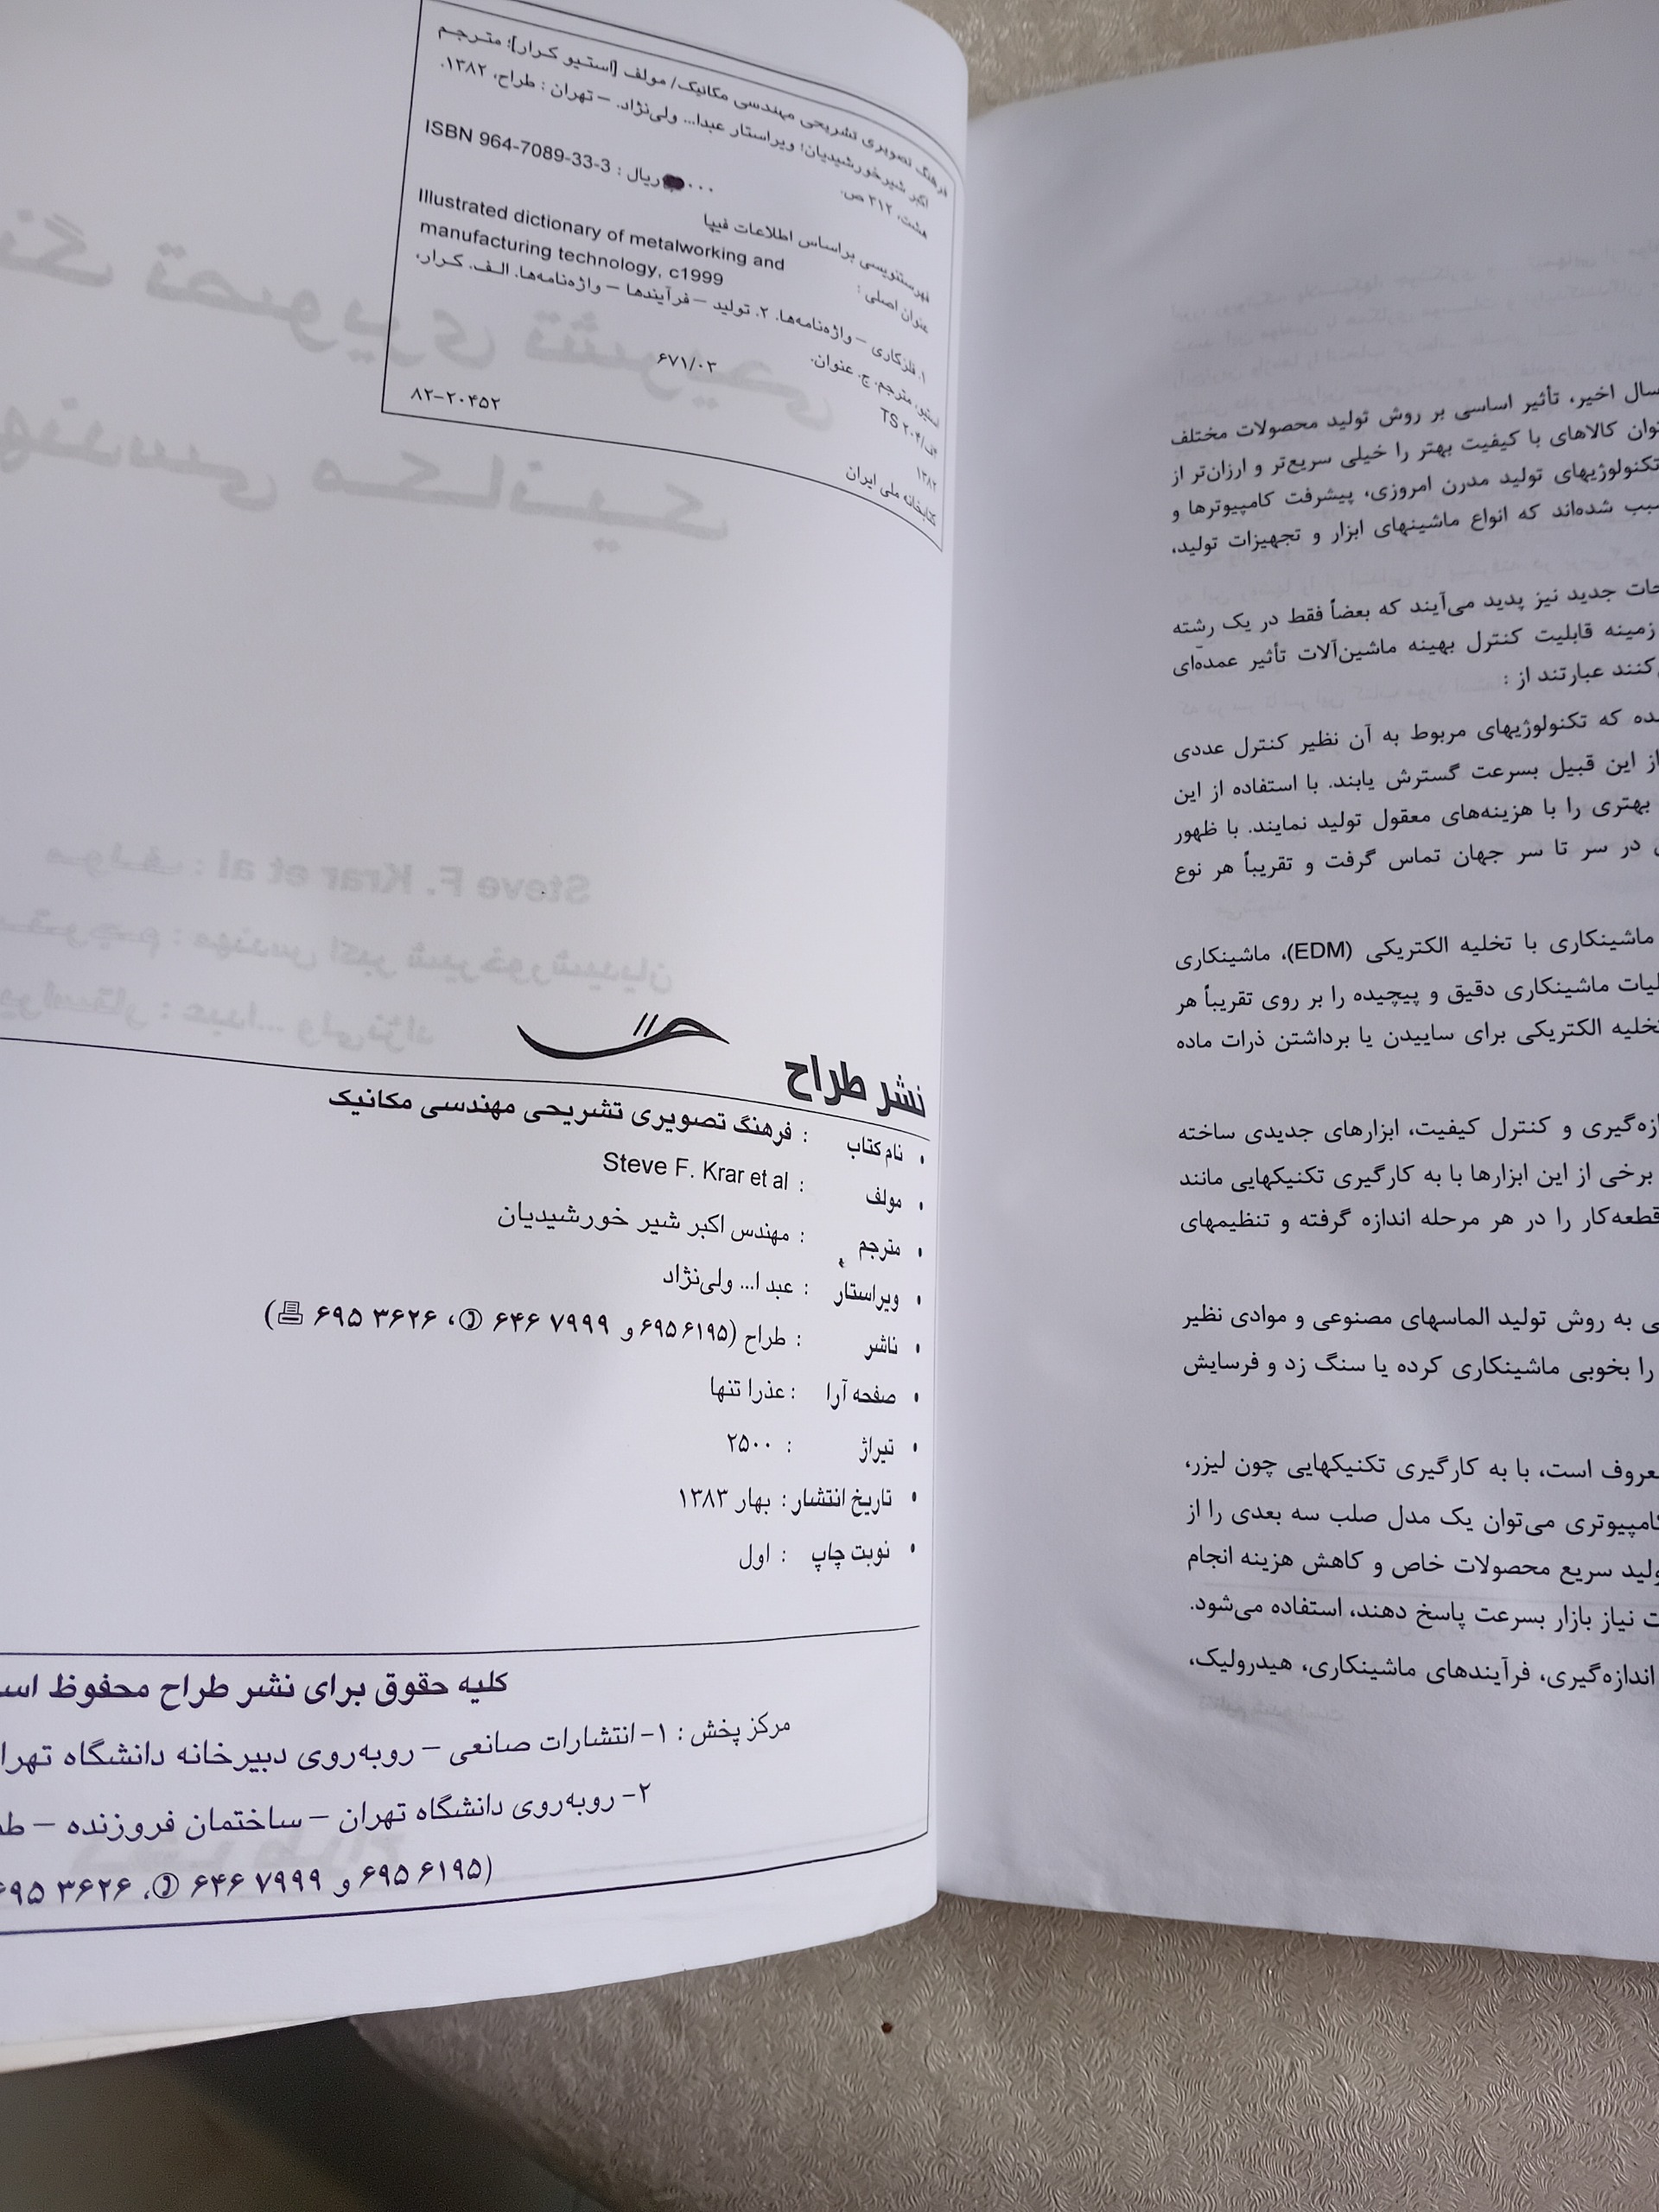 فرهنگ تصویری تشریحی مهندسی مکانیک/ مولف [استیو کرار]؛ مترجم
اکبر شیرخورشیدیان؛ ویراستار عبدا... ولی‌نژاد. – تهران : طراح، ۱۳۸۲.
هشت، ۳۱۲ ص.
ISBN 964-7089-33-3 : ریال ۰۰۰
فهرستنویسی براساس اطلاعات فیپا
عنوان اصلی : Illustrated dictionary of metalworking and
manufacturing technology, c1999
۱. فلزکاری – واژه‌نامه‌ها. ۲. تولید – فرآیندها – واژه‌نامه‌ها. الف. کرار،
استیو، مترجم. ج. عنوان.
۶۷۱/۰۳
TS ۲۰۴/
۱۳۸۲
۸۲–۲۰۴۵۲
کتابخانه ملی ایران
نشر طراح
• نام کتاب : فرهنگ تصویری تشریحی مهندسی مکانیک
• مولف : Steve F. Krar et al
• مترجم : مهندس اکبر شیر خورشیدیان
• ویراستار : عبد ا... ولی‌نژاد
• ناشر : طراح (۶۹۵ ۶۱۹۵ و ۶۴۶ ۷۹۹۹ ✆، ۶۹۵ ۳۶۲۶ 🖷)
• صفحه آرا : عذرا تنها
• تیراژ : ۲۵۰۰
• تاریخ انتشار : بهار ۱۳۸۳
• نوبت چاپ : اول
کلیه حقوق برای نشر طراح محفوظ
مرکز پخش : ۱- انتشارات صانعی – روبه‌روی دبیرخانه دانشگاه
۲- روبه‌روی دانشگاه تهران – ساختمان فروزنده –
(۶۹۵ ۶۱۹۵ و ۶۴۶ ۷۹۹۹ ✆، ۳۶۲۶
سال اخیر، تأثیر اساسی بر روش تولید محصولات مختلف
کالاهای با کیفیت بهتر را خیلی سریع‌تر و ارزان‌تر از
تکنولوژیهای تولید مدرن امروزی، پیشرفت کامپیوترها و
شده‌اند که انواع ماشینهای ابزار و تجهیزات تولید،
جدید نیز پدید می‌آیند که بعضاً فقط در یک رشته
زمینه قابلیت کنترل بهینه ماشین‌آلات تأثیر عمده‌ای
عبارتند از :
که تکنولوژیهای مربوط به آن نظیر کنترل عددی
از این قبیل بسرعت گسترش یابند. با استفاده از این
بهتری را با هزینه‌های معقول تولید نمایند. با ظهور
در سر تا سر جهان تماس گرفت و تقریباً هر نوع
ماشینکاری با تخلیه الکتریکی (EDM)، ماشینکاری
ماشینکاری دقیق و پیچیده را بر روی تقریباً هر
تخلیه الکتریکی برای ساییدن یا برداشتن ذرات ماده
و کنترل کیفیت، ابزارهای جدیدی ساخته
برخی از این ابزارها با به کارگیری تکنیکهایی مانند
قطعه‌کار را در هر مرحله اندازه گرفته و تنظیمهای
به روش تولید الماسهای مصنوعی و موادی نظیر
را بخوبی ماشینکاری کرده یا سنگ زد و فرسایش
معروف است، با به کارگیری تکنیکهایی چون لیزر،
می‌توان یک مدل صلب سه بعدی را از
سریع محصولات خاص و کاهش هزینه انجام
نیاز بازار بسرعت پاسخ دهند، استفاده می‌شود.
اندازه‌گیری، فرآیندهای ماشینکاری، هیدرولیک،